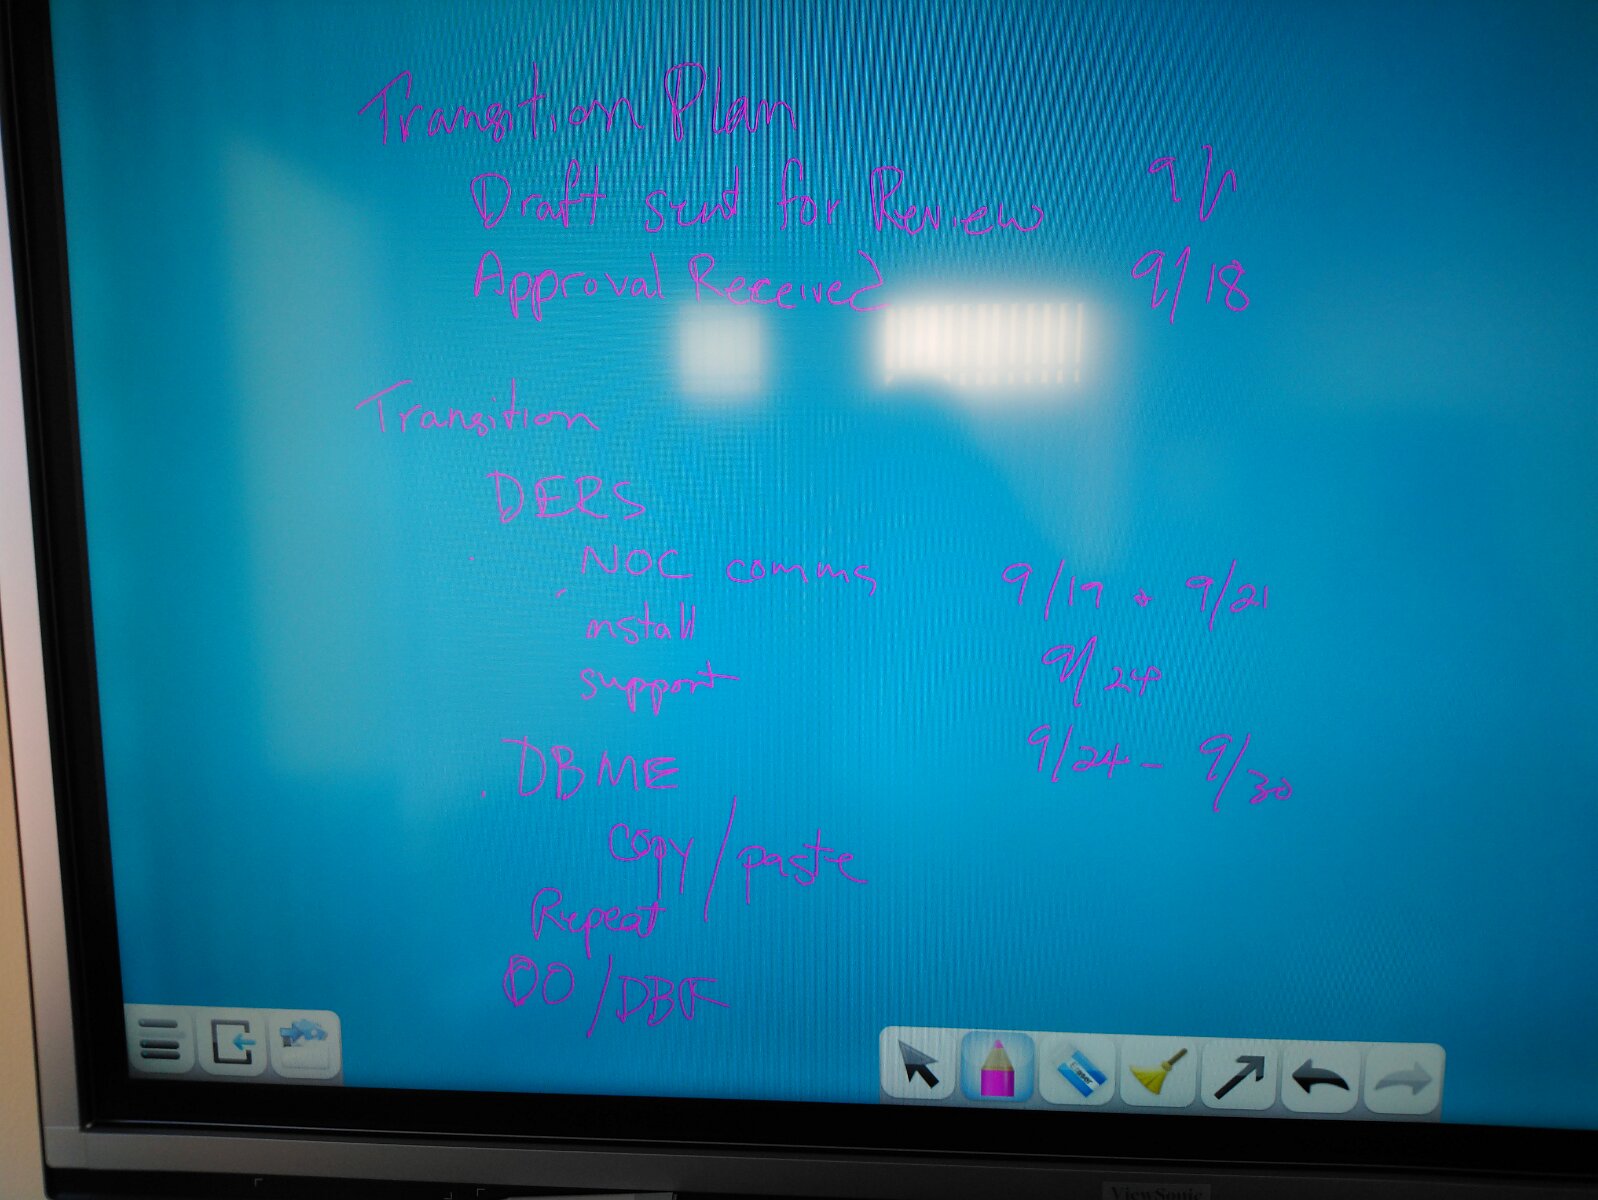 Transition Plan
Draft sent for Review
Approval Received 9/18
Transition
DERS
NOC comms 9/17 + 9/21
install 9/24
support 9/24 - 9/30
DBME
copy/paste
Repeat
DO/DBF
Eraser
ViewSonic